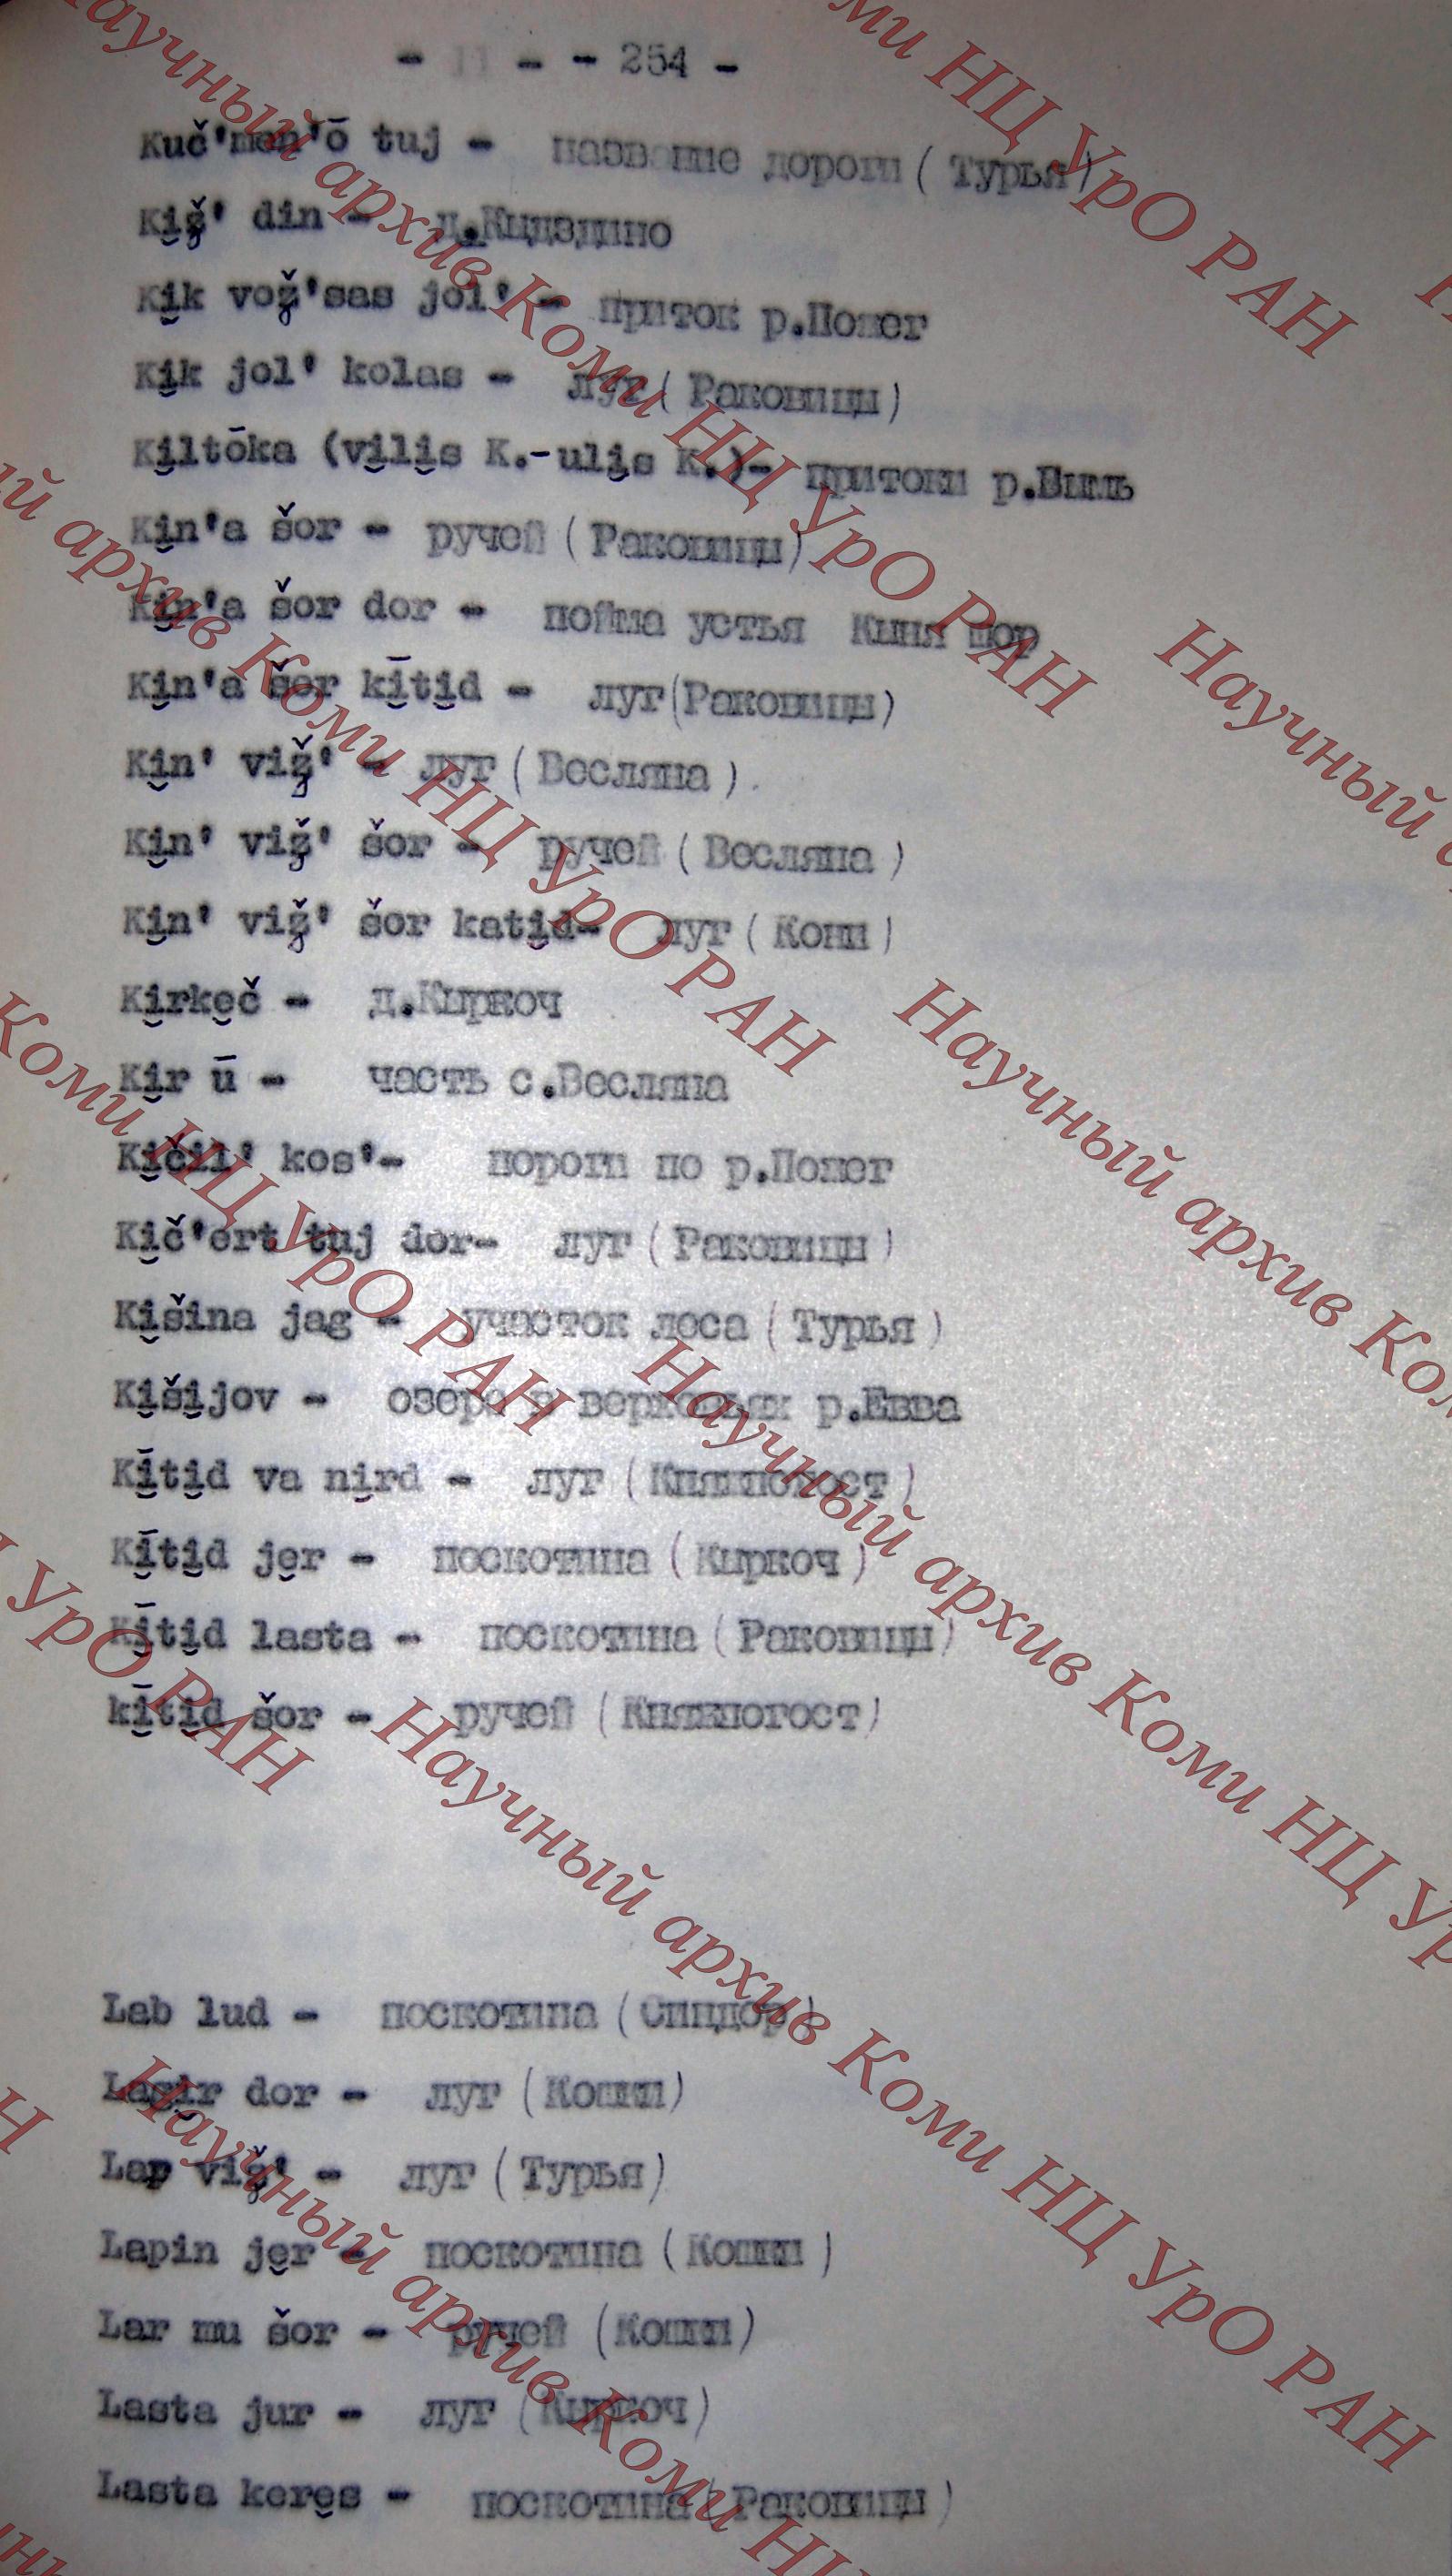 - 11 - - 254 -
Kuč'men'ō tuj - название дороги ( Турья )
Ki̮ǯ' din - д.Кыдздино
Ki̮k voǯ'sas jol' - приток р.Пожег
Ki̮k jol' kolas - луг ( Раковицы )
Ki̮ltōka (vi̮li̮s K.-uli̮s K.)- притоки р.Вымь
Ki̮n'a šor - ручей ( Раковицы)
Ki̮n'a šor dor - пойма устья Кыня шор
Ki̮n'a šor kī̮ti̮d - луг(Раковицы)
Ki̮n' viǯ' - луг ( Весляна ).
Ki̮n' viǯ' šor - ручей ( Весляна )
Ki̮n' viǯ' šor kati̮d- луг ( Кони )
Ki̮rke̮č - д.Кыркоч
Ki̮r ū - часть с.Весляна
Ki̮čil' kos'- пороги по р.Пожег
Ki̮č'ort tuj dor- луг ( Раковицы )
Ki̮šina jag - участок леса ( Турья )
Ki̮ši̮jov - озеро в верховьях р.Евва
Kī̮ti̮d va ni̮rd - луг ( Княжпогост )
Kī̮ti̮d je̮r - поскотина ( Кыркоч )
Kī̮ti̮d lasta - поскотина ( Раковицы)
kī̮ti̮d šor - ручей ( Княжпогост)
Lab lud - поскотина ( Синдор )
Lagi̮r dor - луг ( Кошки)
Lap viǯ' - луг ( Турья)
Lapin je̮r - поскотина ( Кошки )
Lar mu šor - ручей (Кошки)
Lasta jur - луг ( Кыркоч )
Lasta kere̮s - поскотина( Раковицы )
Научный архив Коми НЦ УрО РАН